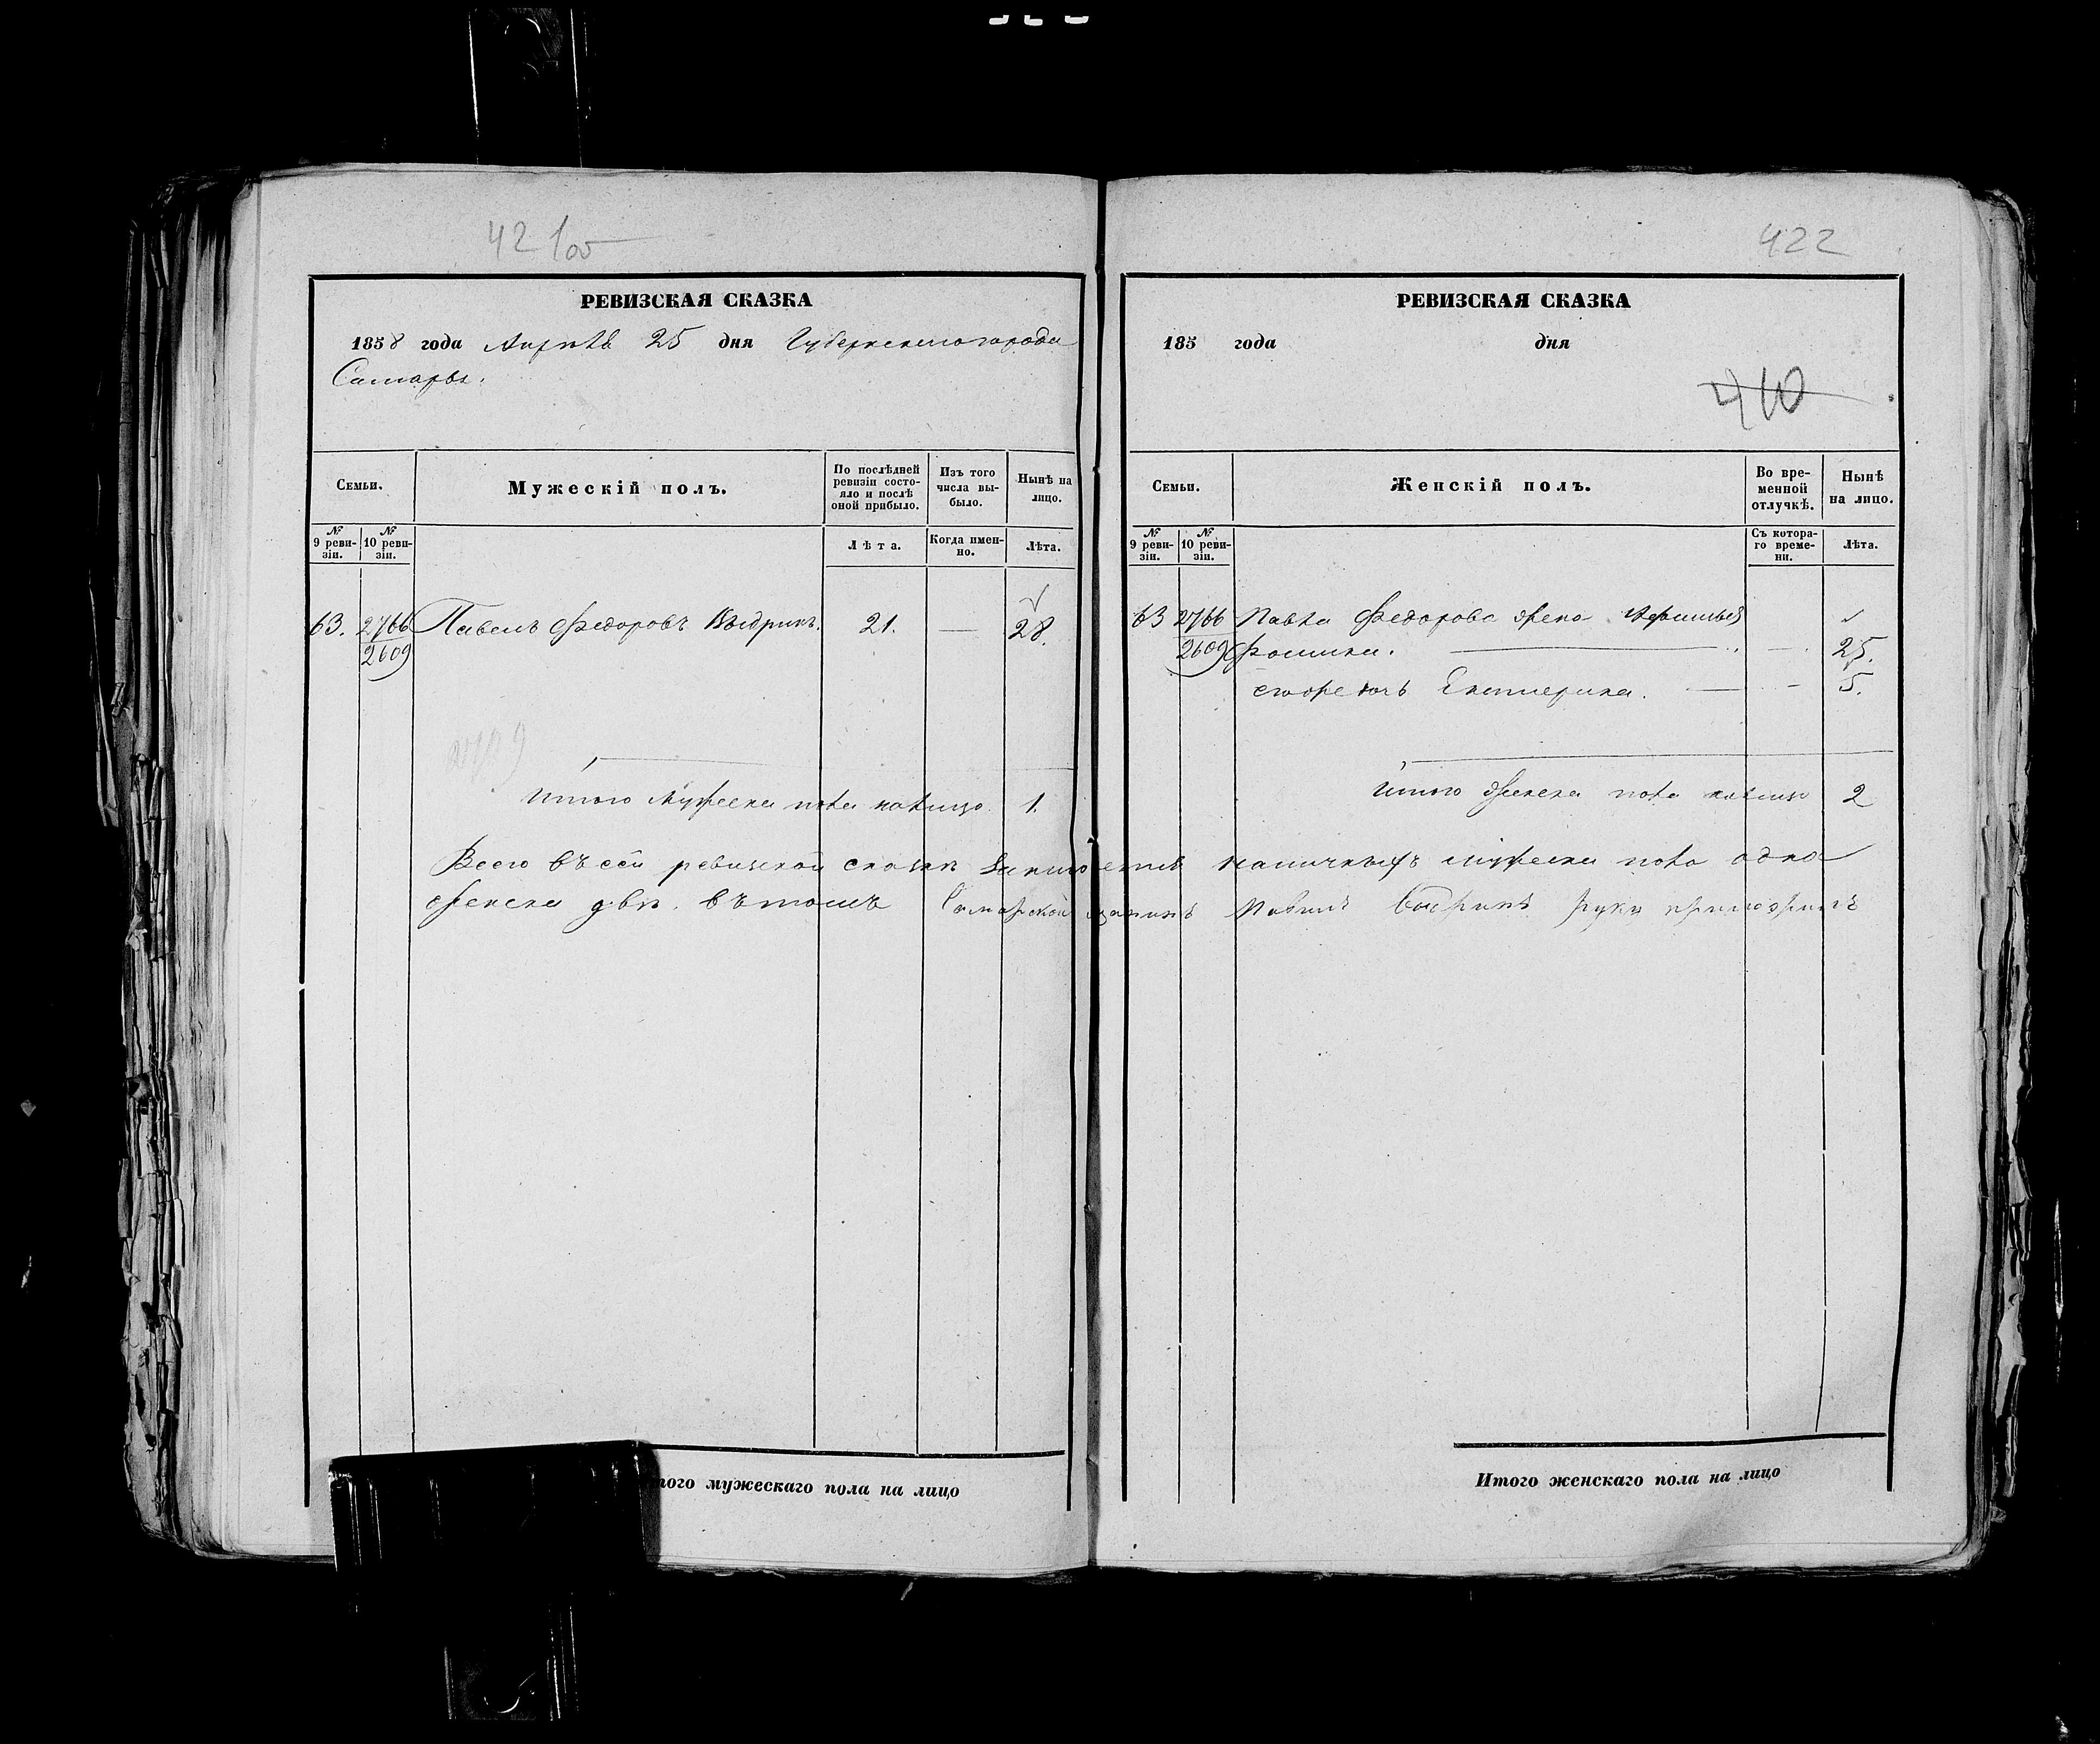 42 1 об
РЕВИЗСКАЯ СКАЗКА
1858 года Апрѣля 25 дня Губернскаго города
Самары.
Семьи.
Мужескій полъ.
По послѣдней ревизіи состояло и послѣ оной прибыло.
Изъ того числа выбыло.
Нынѣ на лицо.
№ 9 ревизіи.
№ 10 ревизіи.
Лѣта.
Когда именно.
Лѣта.
63. 2766 Павелъ Федоровъ Выдринъ. 21. — 28.
2609
Итого мужеска пола налицо 1.
Итого мужескаго пола на лицо
422
РЕВИЗСКАЯ СКАЗКА
185 года дня
410
Семьи.
Женскій полъ.
Во временной отлучкѣ.
Нынѣ на лицо.
№ 9 ревизіи.
№ 10 ревизіи.
Съ котораго времени.
Лѣта.
63 2766 Павла Федорова жена
2609 Фомина. — 25.
его же дочь Екатерина. — 5.
Итого женска пола налицо 2
Всего въ сей ревизской сказкѣ заключается наличныхъ мужеска пола одна
женска двѣ. въ томъ Самарской мещанинъ Павилъ Выдринъ руку приложилъ
Итого женскаго пола на лицо